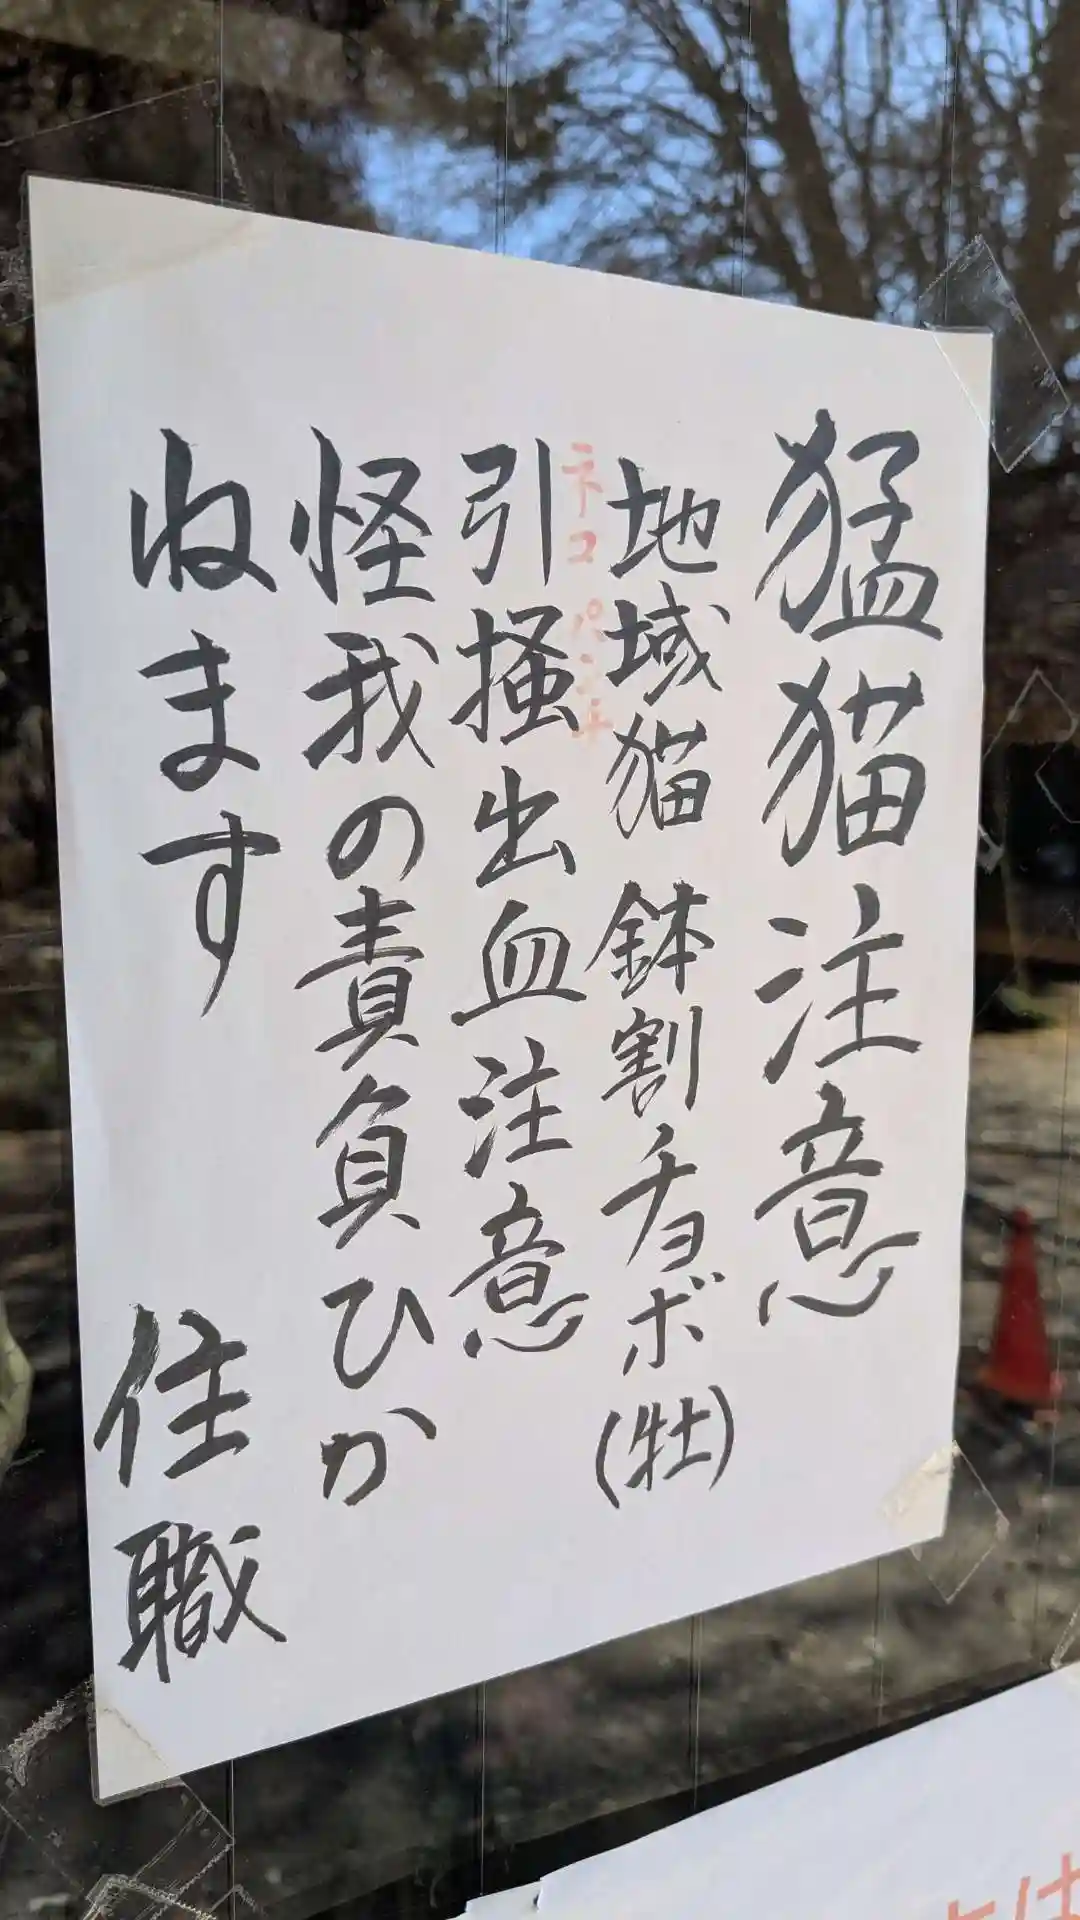 猛猫注意
地域猫 鉢割チョボ(牡)
ネコパンチ
引掻出血注意
怪我の責負ひか
ねます
住職